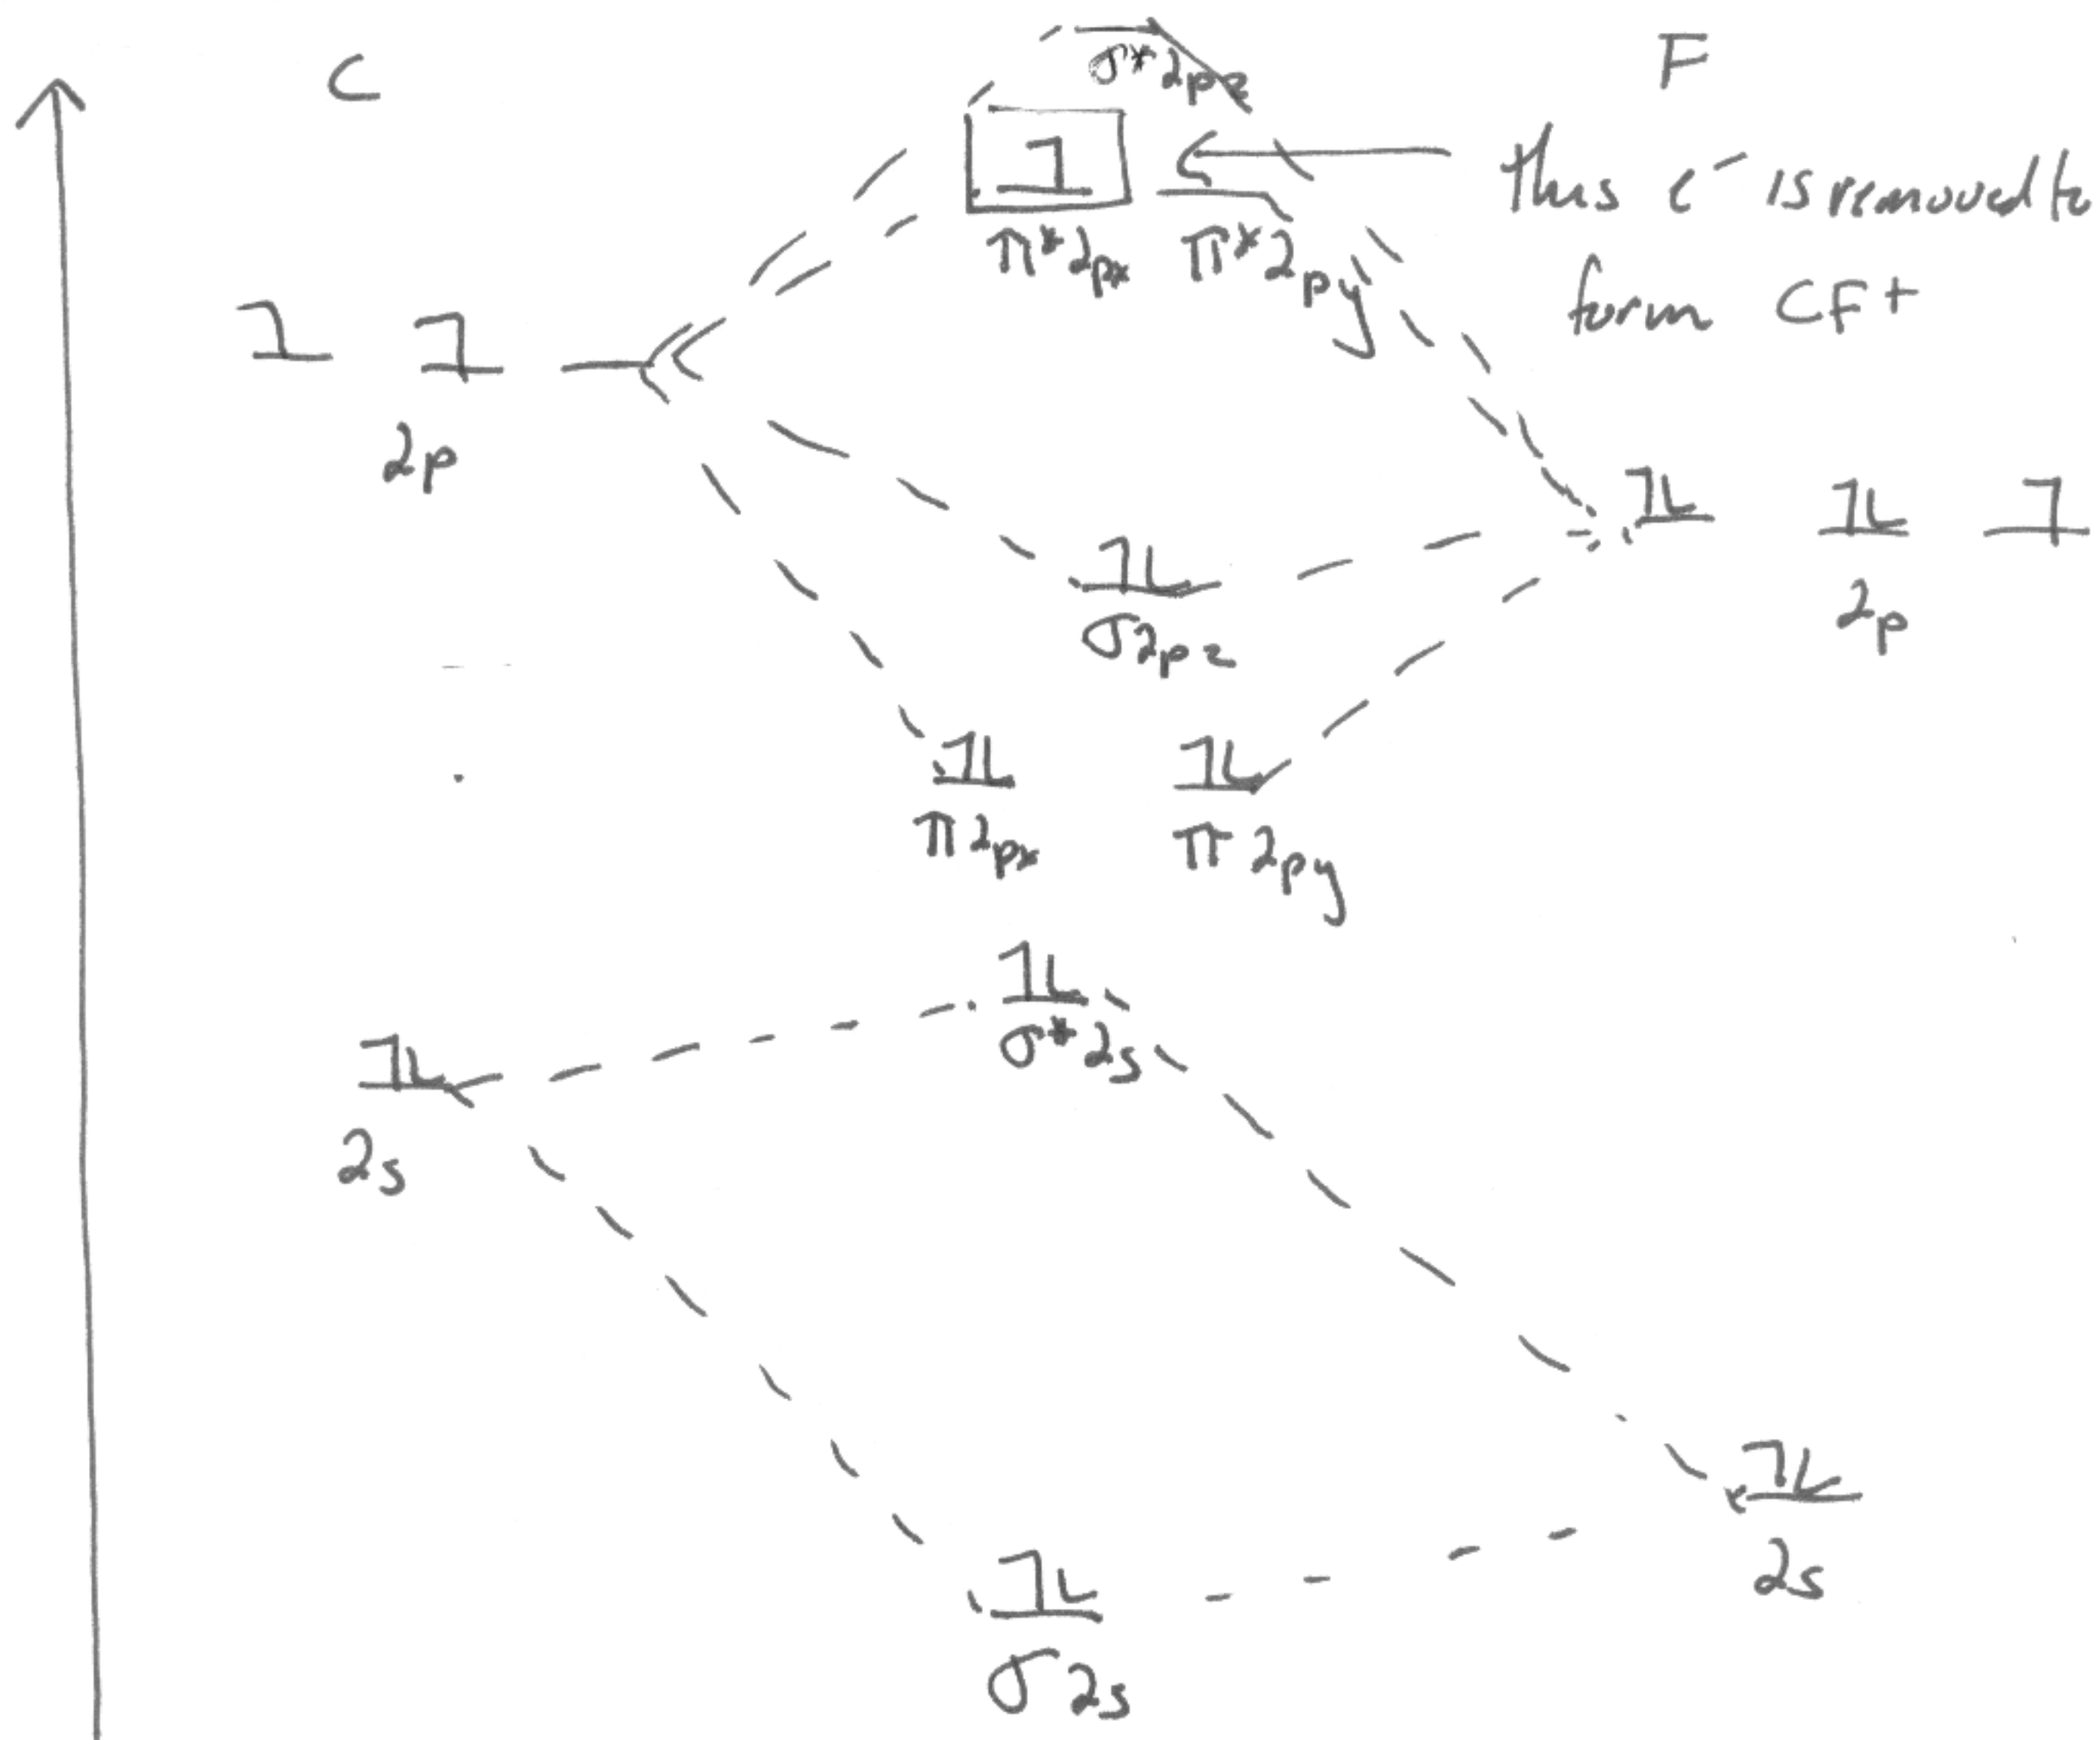 C
F
σ*2pz
this e- is removed to
form CF+
π*2px
π*2py
2p
2p
σ2pz
π2px
π2py
σ*2s
2s
2s
σ2s